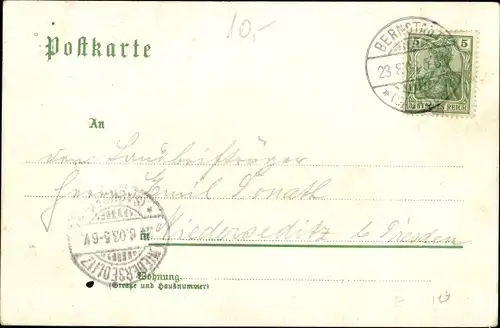 10,-
Postkarte
BERNSTADT
23.8
5 5
DEUTSCHES REICH
An
den Landbriefträger
Herrn Emil Donath
in Niedersedlitz b Dresden
8.03.5-6N.
NIEDERSEDLITZ
Wohnung
(Straße und Hausnummer)